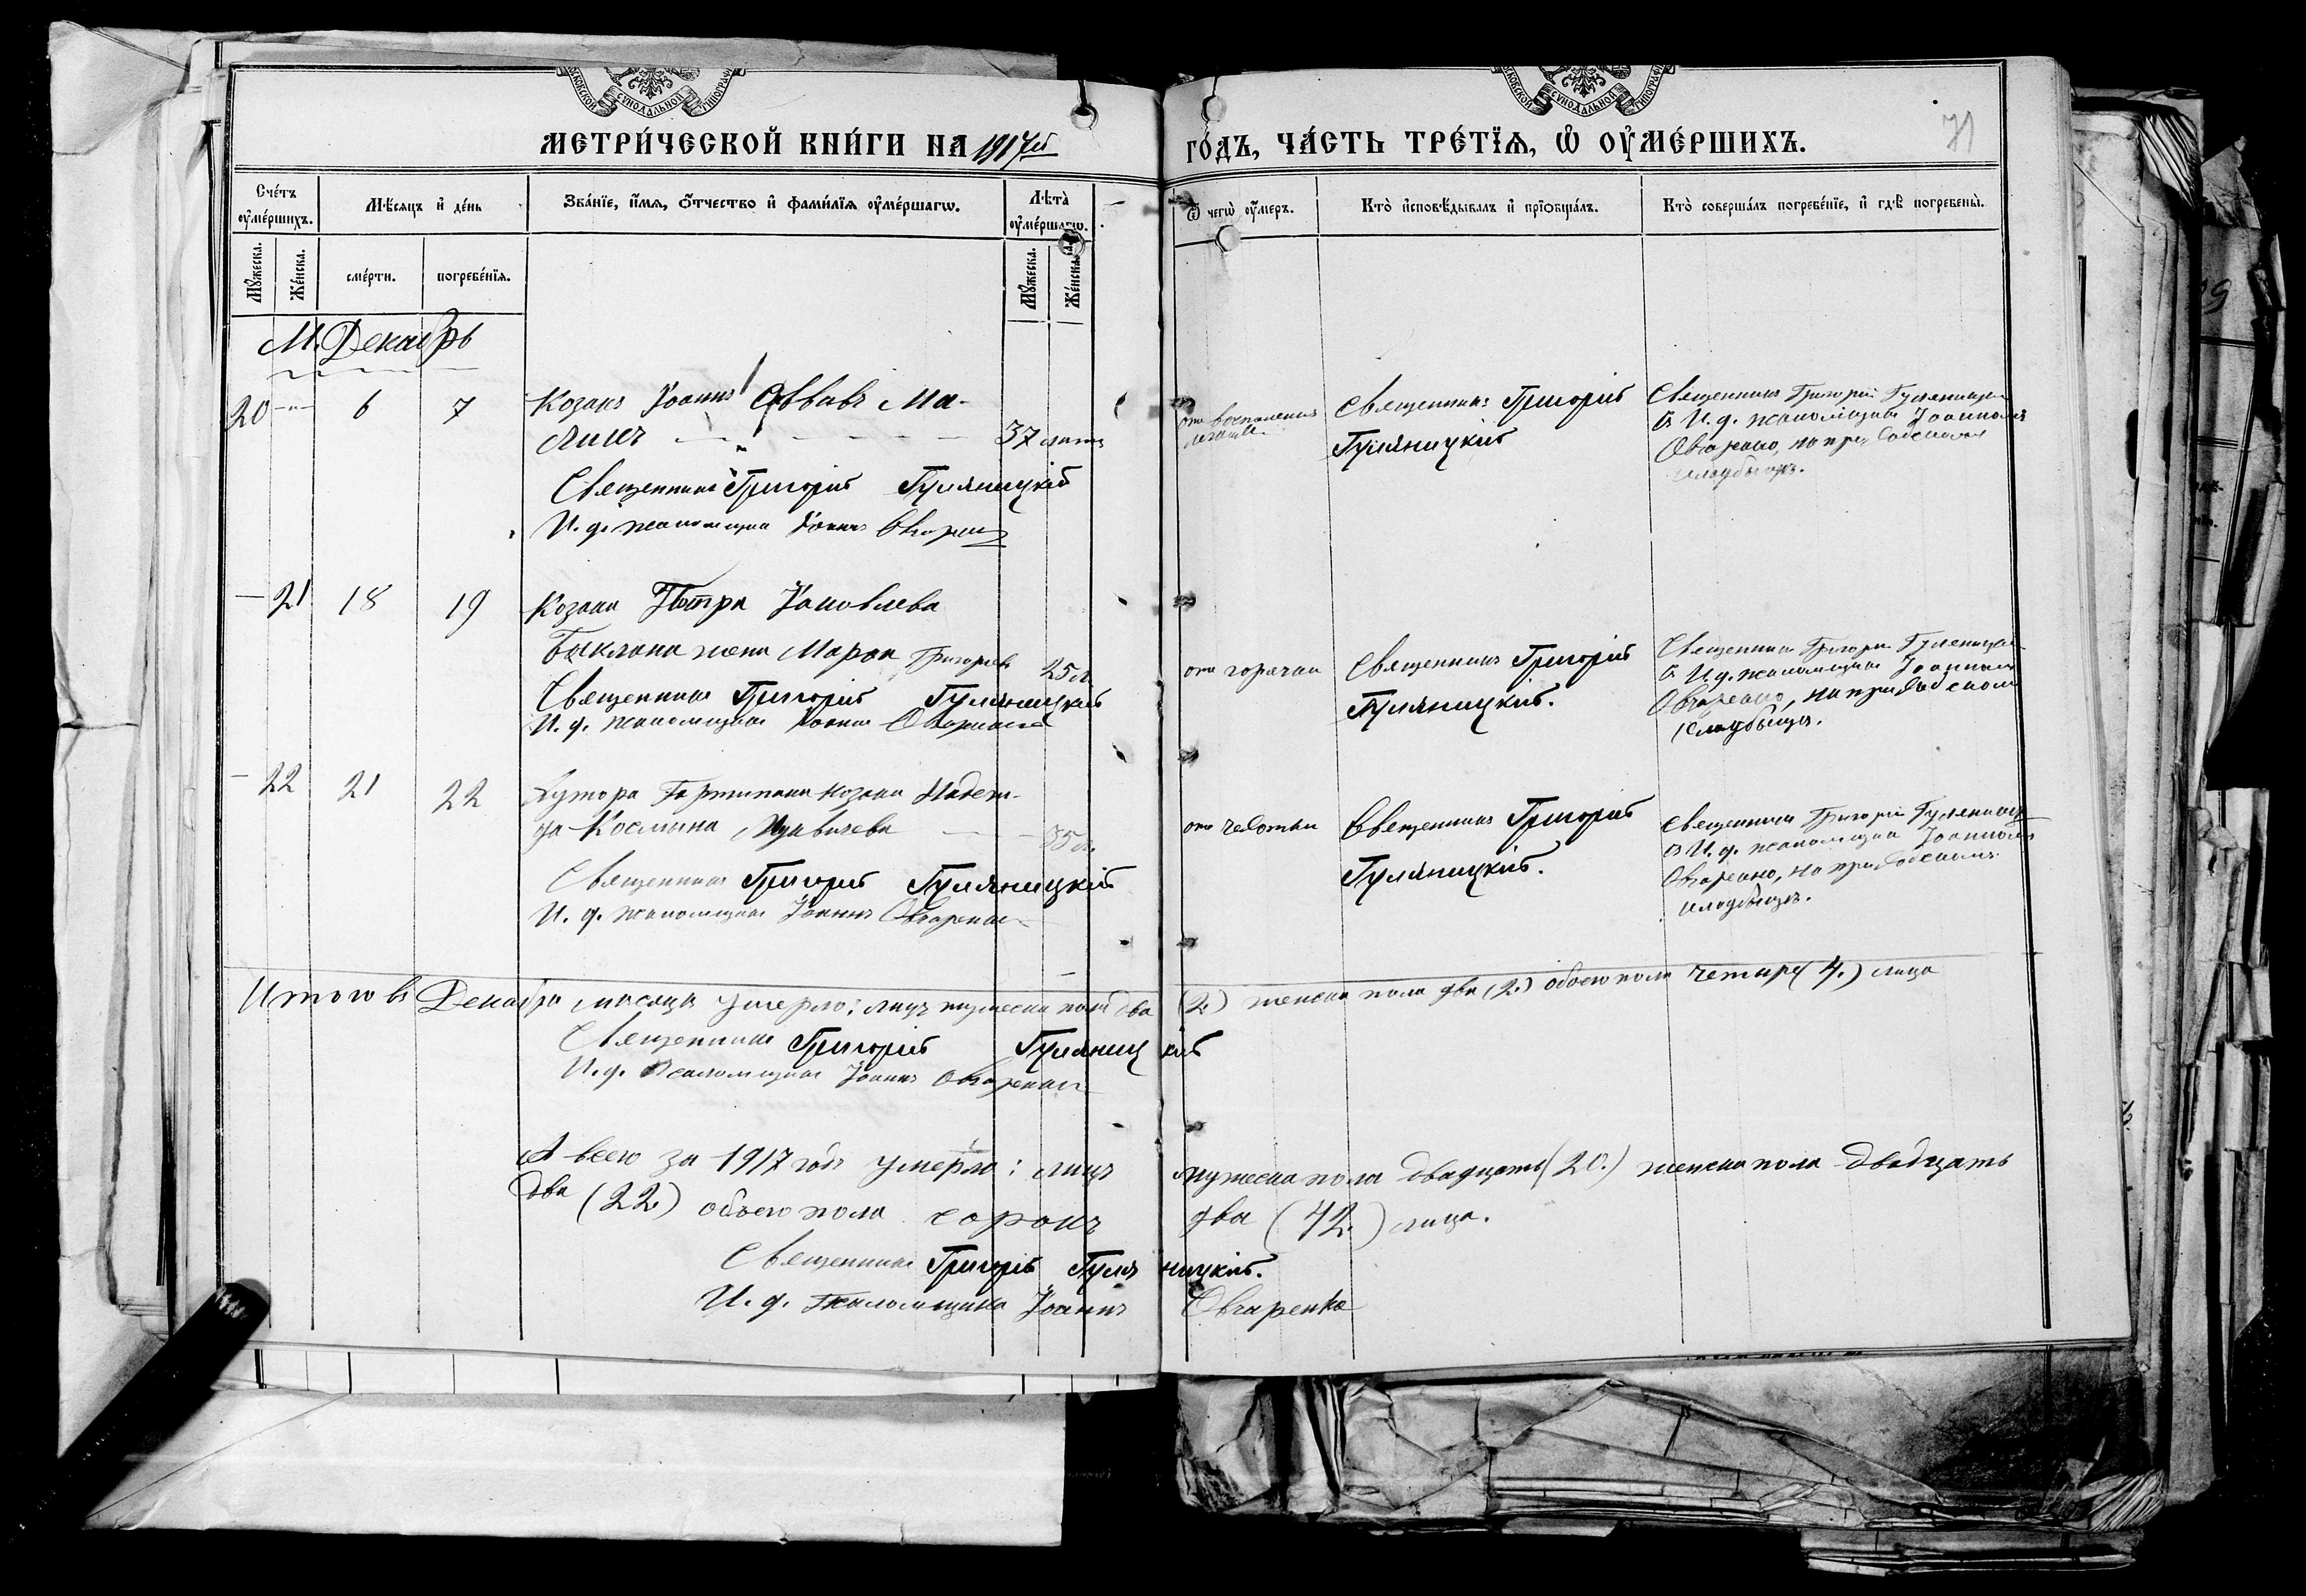 МЕТРИ́ЧЕСКОЙ КНИ́ГИ НА 1917й
ГО́ДЪ, ЧА́СТЬ ТРЕ́ТЇѦ, Ѡ҆ ОУ҆МЕ́РШИХЪ.
71
Сче́тъ оу҆ме́ршихъ.
Мѣ́сяцъ и҆ де́нь
Зва́нїе, и҆́мѧ, ѻ҆́тчество и҆ фами́лїѧ оу҆ме́ршагѡ.
Лѣ́та оу҆ме́ршагѡ.
Ѿ чегѡ̀ оу҆́меръ.
Кто̀ и҆сповѣ́дывалъ и҆ прїѡбща́лъ.
Кто̀ соверша́лъ погребе́нїе, и҆ гдѣ̀ погребены̀.
Мꙋ́жеска.
Же́нска.
сме́рти.
погребе́нїѧ.
Мꙋ́жеска.
Же́нска.
М. Декабрь
20 6 7
Козакъ Іоаннъ Саввовъ Ма-
37 летъ
Священникъ Григорій Гуляницкій
И. д. псаломщика Іоаннъ Овчаренко
от воспаления
Священникъ Григорій
Гуляницкій
Священникъ Григорій Гуляницкій
съ И. д. псаломщика Іоанномъ
Овчаренко, на приходскомъ
кладбищѣ.
21 18 19
Козака Петра Яковлева
жена Марфа Григорьева
25 л.
Священникъ Григорій Гуляницкій
И. д. псаломщика Іоаннъ Овчаренко
от горячки
Священникъ Григорій
Гуляницкій.
Священникъ Григорій Гуляницкій
съ И. д. псаломщика Іоанномъ
Овчаренко, на приходскомъ
кладбищѣ.
22 21 22
Хутора козака Надеж-
да Космина
35 л.
Священникъ Григорій Гуляницкій
И. д. псаломщика Іоаннъ Овчаренко
от чахотки
Священникъ Григорій
Гуляницкій.
Священникъ Григорій Гуляницкій
съ И. д. псаломщика Іоанномъ
Овчаренко, на приходскомъ
кладбищѣ.
Итого въ Декабре месяце умерло: лицъ мужеска пола два (2.) женска пола два (2.) обоего пола четыре (4.) лица
Священникъ Григорій Гуляницкій
И. д. Псаломщика Іоаннъ Овчаренко
А всего за 1917 годъ умерло: лицъ мужеска пола двадцать (20.) женска пола двадцать
два (22.) обоего пола сорокъ два (42.) лица.
Священникъ Григорій Гуляницкій.
И. д. Псаломщика Іоаннъ Овчаренко